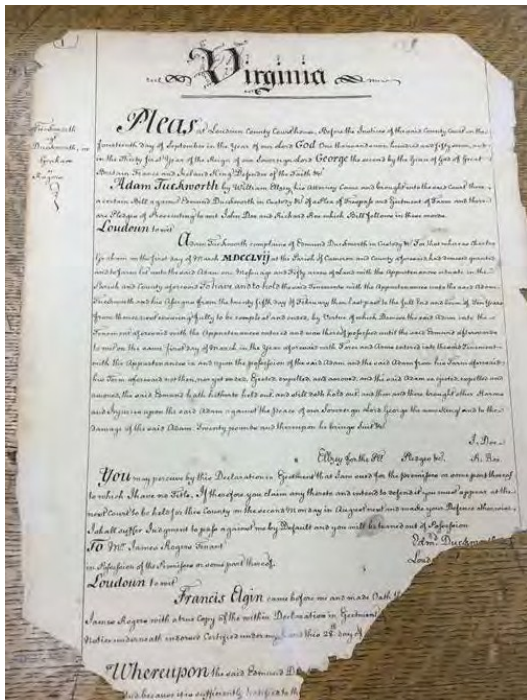 Virginia
Pleas at Loudoun County Courthouse, Before the Justices of the said County Court on the
fourteenth day of September in the Year of our Lord God One thousand seven hundred and fifty seven, and
in the Thirty first Year of the Reign of our Sovereign Lord George the second by the Grace of God of Great
Britain France and Ireland King Defender of the Faith &c
Tuckworth
vs
Duckworth, on
Graham
Rogers
Adam Tuckworth by William Ellzey his Attorney Came and brought into the said Court there
a certain Bill against Edmund Duckworth in Custody &c of a Plea of Trespass and Ejectment of Farm and there
are Pledges of Prosecuting to wit John Doe and Richard Roe which Bill follows in these words
Loudoun to wit
Adam Tuckworth complains of Edmund Duckworth in Custody &c For that whereas
on the first day of March MDCCLVIJ at the Parish of Cameron and County aforesaid had demised granted
and to farm let unto the said Adam one Messuage and Fifty acres of Land with the Appurtenances situate in the
Parish and County aforesaid To have and to hold the said Tenements with the Appurtenances unto the said Adam
Tuckworth and his Assigns from the twenty fifth day of February then last past to the full End and Term of Ten Years
from thence next ensuing fully to be compleat and ended, by Virtue of which Demise the said Adam into the
Tenement aforesaid with the Appurtenances entered and was thereof possessed until the said Edmund afterwards
to wit on the same first day of March in the Year aforesaid with Force and Arms entered into the said Tenement
with the Appurtenances in and upon the possession of the said Adam and the said Adam from his Farm aforesaid
his Term aforesaid not then, nor yet ended, Ejected, expelled, and amoved, and the said Adam so ejected, expelled and
amoved, the said Edmund hath hitherto held out, and still doth hold out, and then and there brought other Harms
and Injuries upon the said Adam against the Peace of our Sovereign Lord George the now King and to the
damage of the said Adam Twenty pounds and thereupon he brings Suit &c
J. Doe
Ellzey for the Plt Pledges &c. R. Roe
You may perceive by this Declaration in Ejectment that I am sued for the premises or some part thereof
to which I have no Title. If therefore you claim any thereto and intend to defend it you must appear at the
next Court to be held for this County on the second Monday in August next and make your Defence otherwise
I shall suffer Judgment to pass against me by Default and you will be turned out of Possession
To Mr. James Rogers Tenant Edmd. Duckworth
in Possession of the Premises or some part thereof. Loud
Loudoun to wit
Francis Elgin came before me and made Oath th
James Rogers with a true Copy of the within Declaration in Ejectment
Notice underneath endorsed Certified under my hand this 28th day of
Whereupon the said Edmund D
and because it is sufficiently testified to th